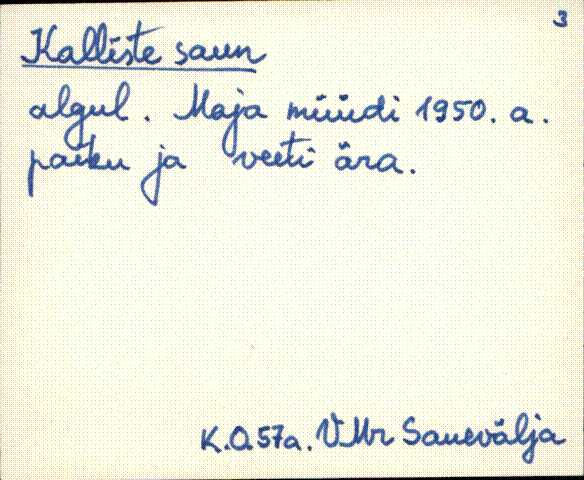 3
Kalliste saun
algul. Maja müüdi 1950. a.
paiku ja veeti ära.
K.O. 57a. VMr Sauevälja